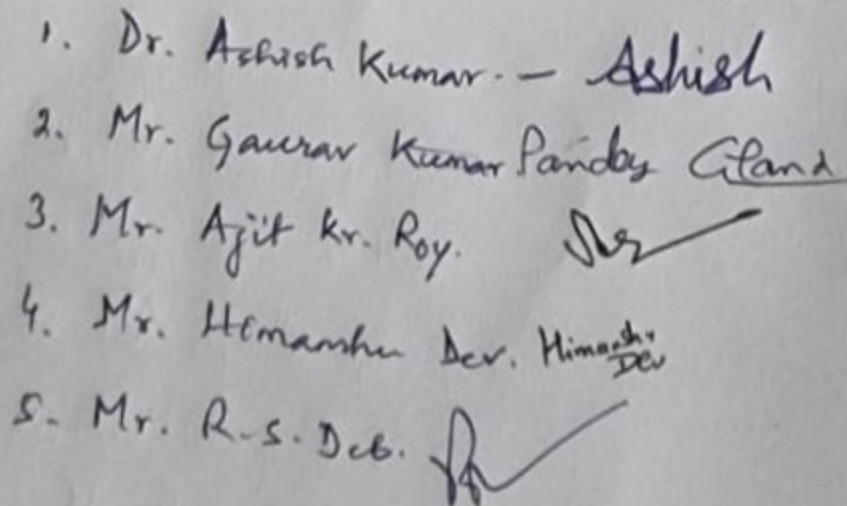 1. Dr. Ashish Kumar. — Ashish
2. Mr. Gaurav Kumar Pandey
3. Mr. Ajit Kr. Roy.
4. Mr. Himanshu Dev. Himanshu Dev
5. Mr. R.S. Deb.